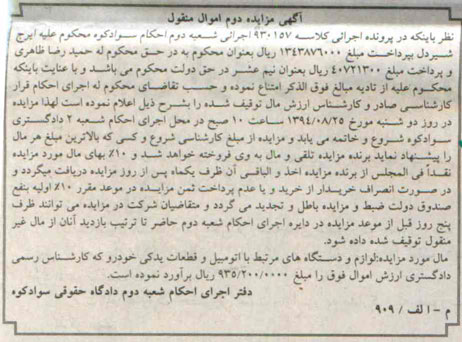 آگهی مزایده دوم اموال منقول
نظر باینکه در پرونده اجرائی کلاسه ۹۳۰۱۵۷ اجرائی شعبه دوم احکام سوادکوه محکوم علیه ایرج
شیردل بپرداخت مبلغ ۱۳۴۳۸۷۶۰۰۰ ریال بعنوان محکوم به در حق محکوم له حمید رضا طاهری
و پرداخت مبلغ ۴۰۷۲۱۳۰۰ ریال بعنوان نیم عشر در حق دولت محکوم می باشد و با عنایت باینکه
محکوم علیه از تادیه مبالغ فوق الذکر امتناع نموده و حسب تقاضای محکوم له اجرای احکام قرار
کارشناسی صادر و کارشناس ارزش مال توقیف شده را بشرح ذیل اعلام نموده است لهذا مزایده
در روز دو شنبه مورخ ۱۳۹۴/۰۸/۲۵ ساعت ۱۰ صبح در محل اجرای احکام شعبه ۲ دادگستری
سوادکوه شروع و خاتمه می یابد و مزایده از مبلغ کارشناسی شروع و کسی که بالاترین مبلغ هر مال
را پیشنهاد نماید برنده مزایده تلقی و مال به وی فروخته خواهد شد و ۱۰٪ بهای مال مورد مزایده
نقداً فی المجلس از برنده مزایده اخذ و الباقی آن ظرف یکماه پس از روز مزایده دریافت میگردد و
در صورت انصراف خریدار از خرید و یا عدم پرداخت ثمن مزایده در موعد مقرر ۱۰٪ اولیه بنفع
صندوق دولت ضبط و مزایده باطل و تجدید می گردد و متقاضیان شرکت در مزایده می توانند ظرف
پنج روز قبل از موعد مزایده در دایره اجرای احکام شعبه دوم حاضر تا ترتیب بازدید آنان از مال غیر
منقول توقیف شده داده شود.
مال مورد مزایده:لوازم و دستگاه های مرتبط با اتومبیل و قطعات یدکی خودرو که کارشناس رسمی
دادگستری ارزش اموال فوق را مبلغ ۹۳۵/۲۰۰/۰۰۰۰ ریال برآورد نموده است.
دفتر اجرای احکام شعبه دوم دادگاه حقوقی سوادکوه
م - الف / ۹۰۹